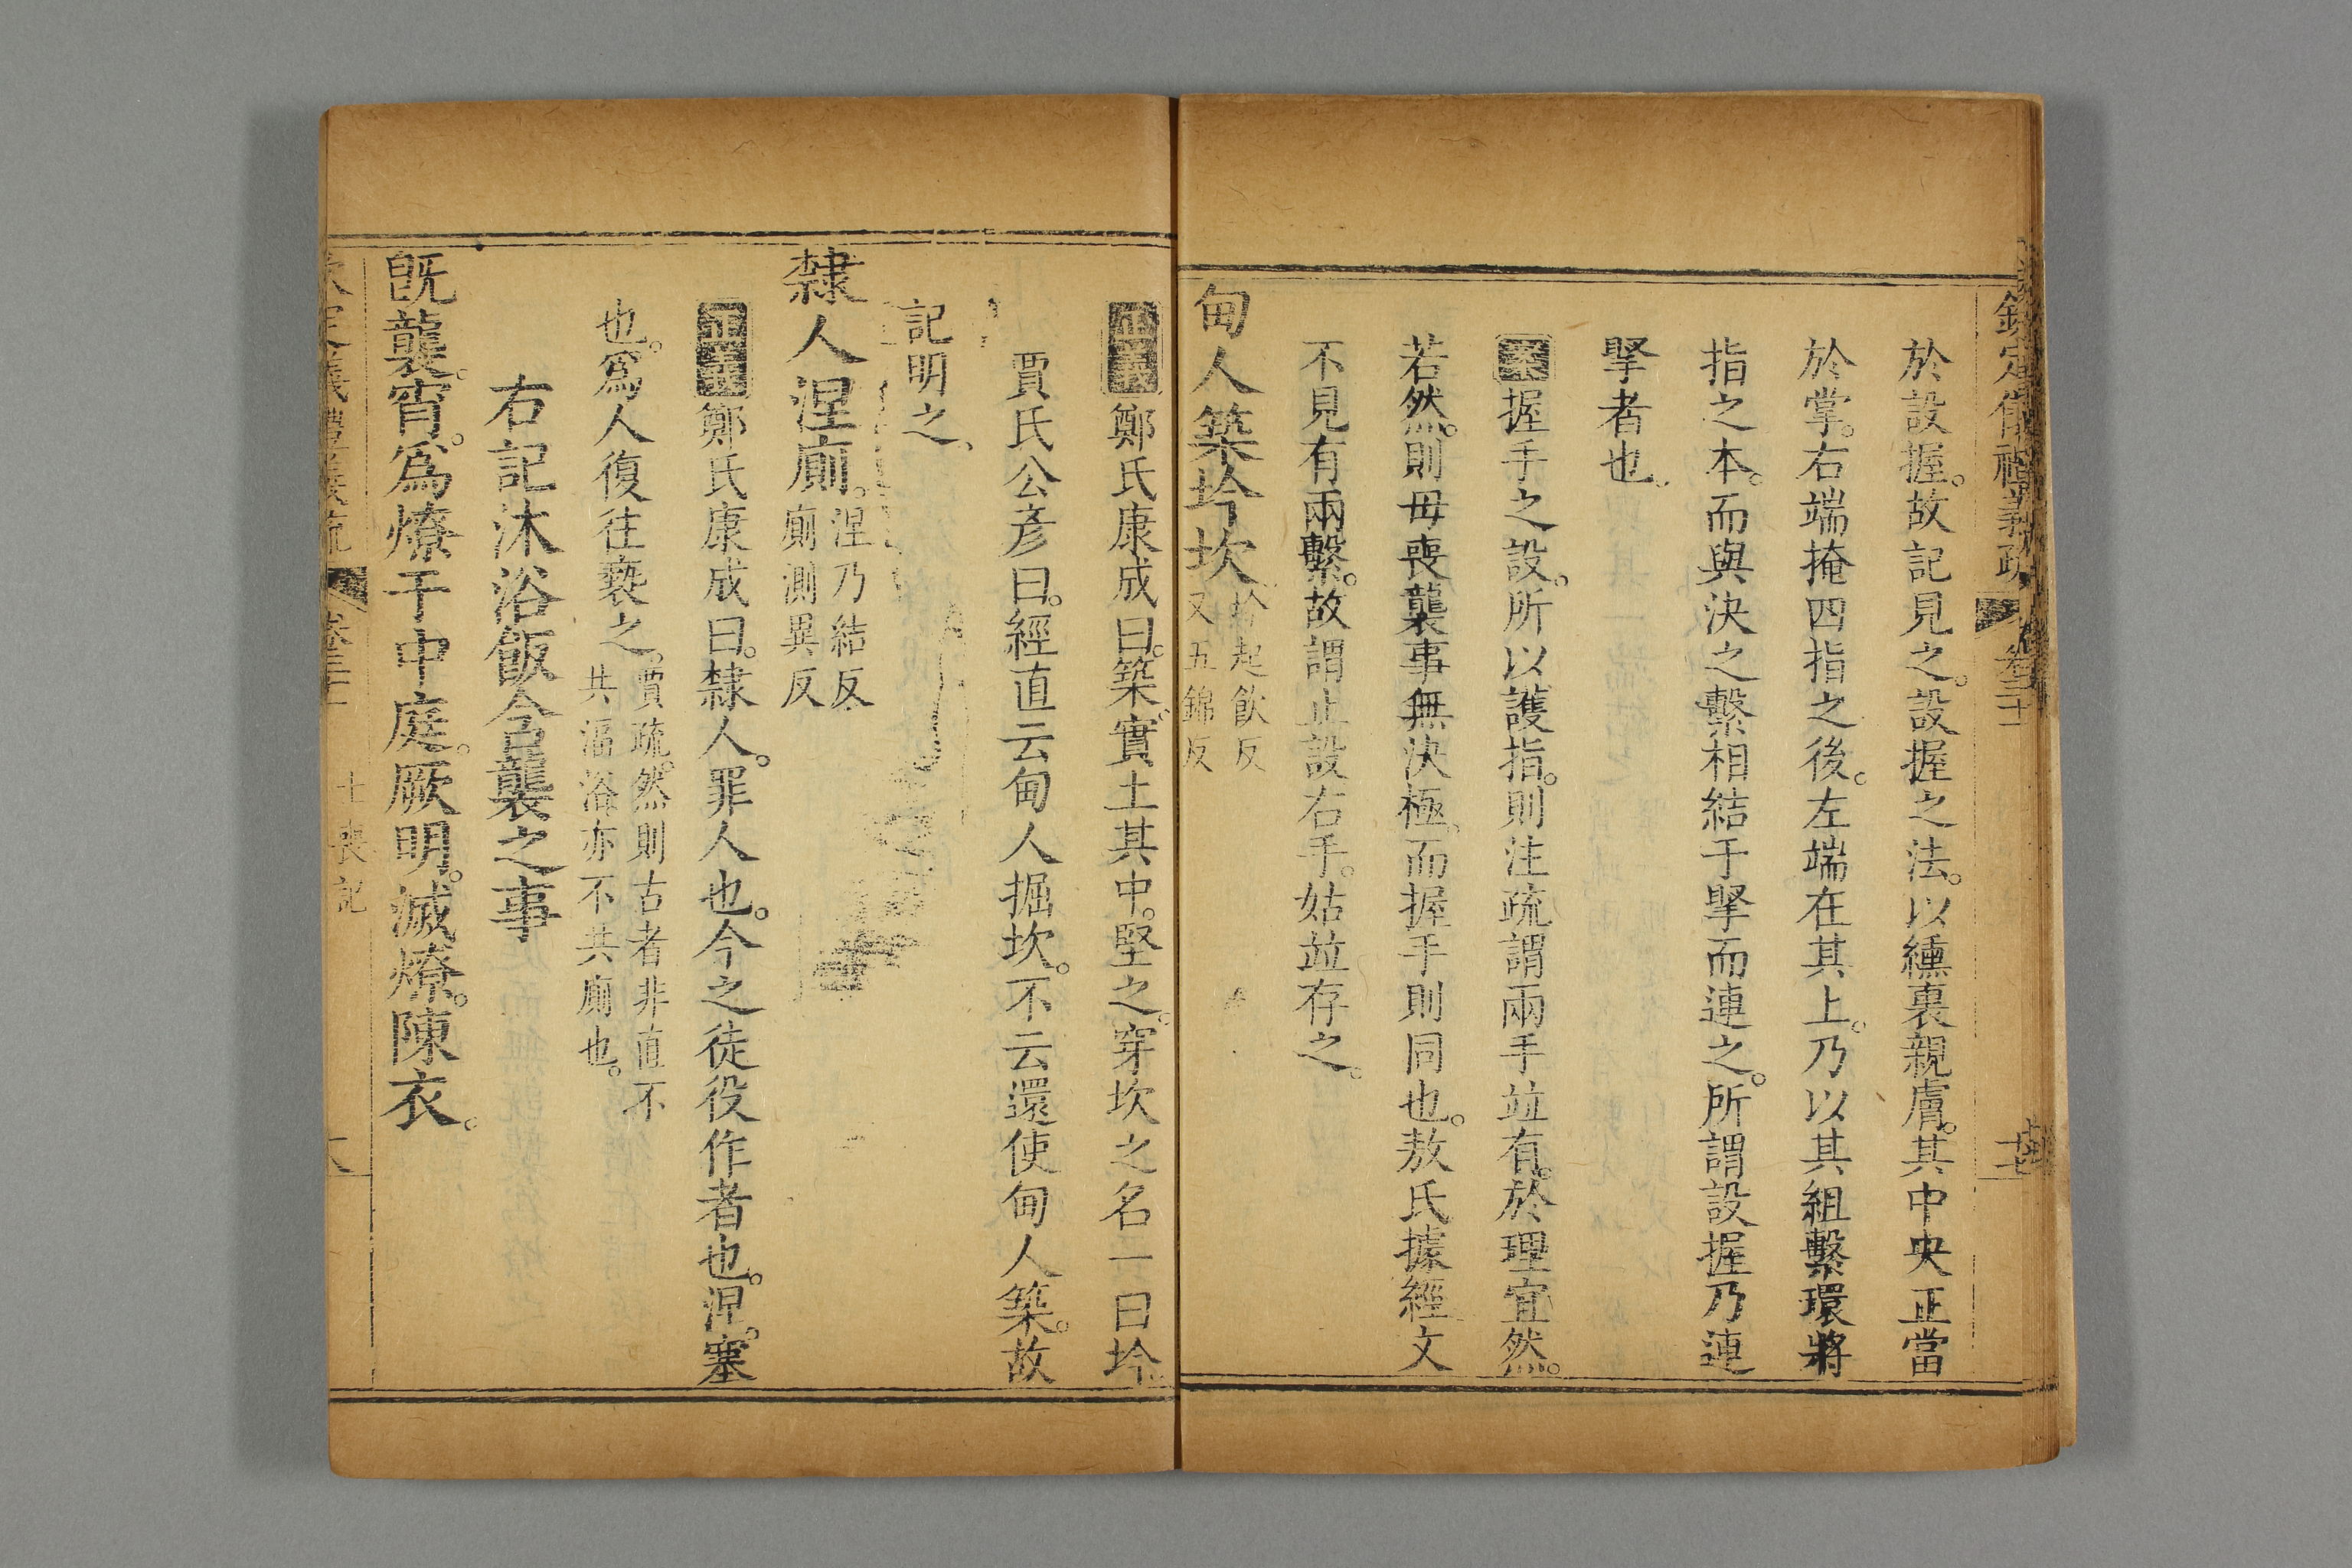 欽定儀禮義疏 卷三十
於設握。故記見之。設握之法。以纁裏親膚。其中央正當
於掌。右端掩四指之後。左端在其上。乃以其組繫環將
指之本。而與決之繫相結于掔而連之。所謂設握乃連
掔者也。
案握手之設。所以護指。則注疏謂兩手竝有。於理宜然。
若然。則毋喪襲事無決極。而握手則同也。敖氏據經文
不見有兩繫。故謂止設右手。姑竝存之。
甸人築坅坎坅起飲反
又五錦反
正義鄭氏康成曰。築實土其中。堅之。穿坎之名一曰坅
賈氏公彥曰。經直云甸人掘坎。不云還使甸人築。故
記明之
隸人涅廁。涅乃結反
廁測異反
正義鄭氏康成曰。隸人。罪人也。今之徒役作者也。涅。塞
也。爲人復往褻之。賈疏。然則古者非直不
共湢浴亦不共廁也。
右記沐浴飯含襲之事
既襲。宵。爲燎于中庭。厥明。滅燎。陳衣。
士喪記